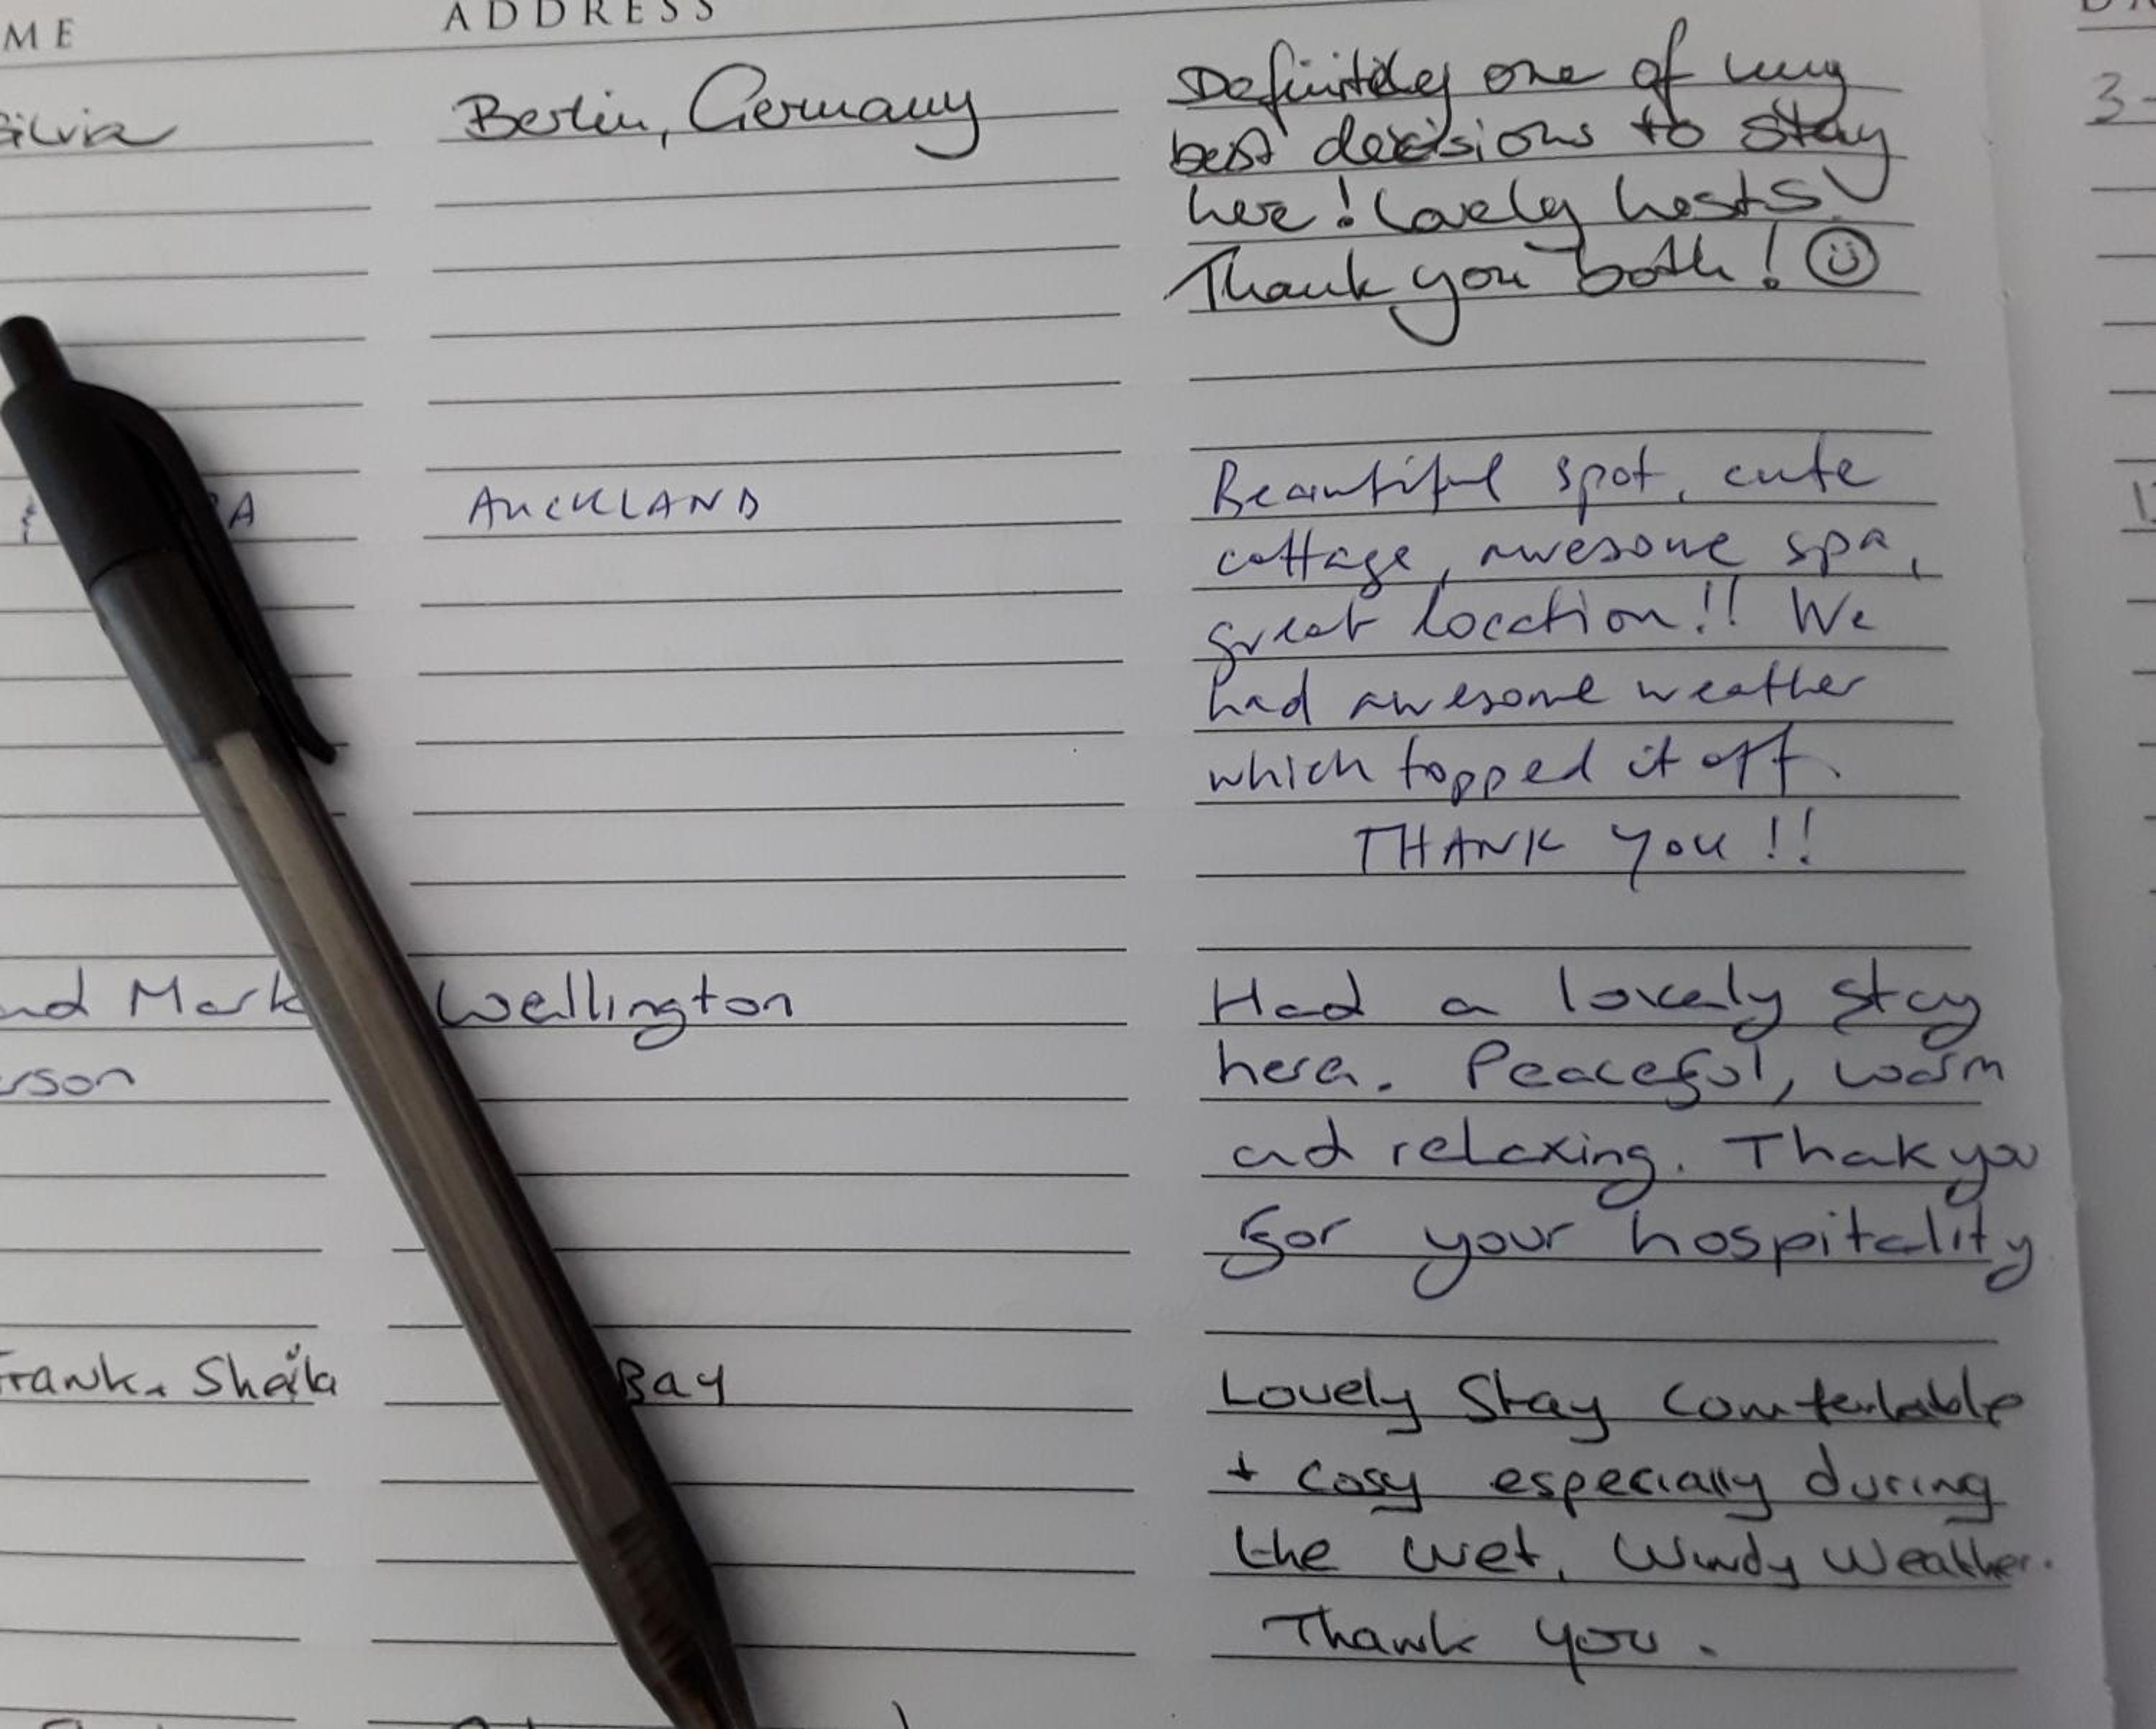 ME ADDRESS
Silvia Berlin, Germany Definitely one of my
best decisions to stay
here! Lovely hosts.
Thank you both! ☺
AUCKLAND Beautiful spot, cute
cottage, awesome spa,
great location!! We
had awesome weather
which topped it off.
THANK YOU!!
nd Mark Wellington Had a lovely stay
here. Peaceful, warm
and relaxing. Thak you
for your hospitality
rson
Frank. Sheila Bay Lovely Stay Comfortable
+ Cosy especially during
the wet, Windy Weather.
Thank you.